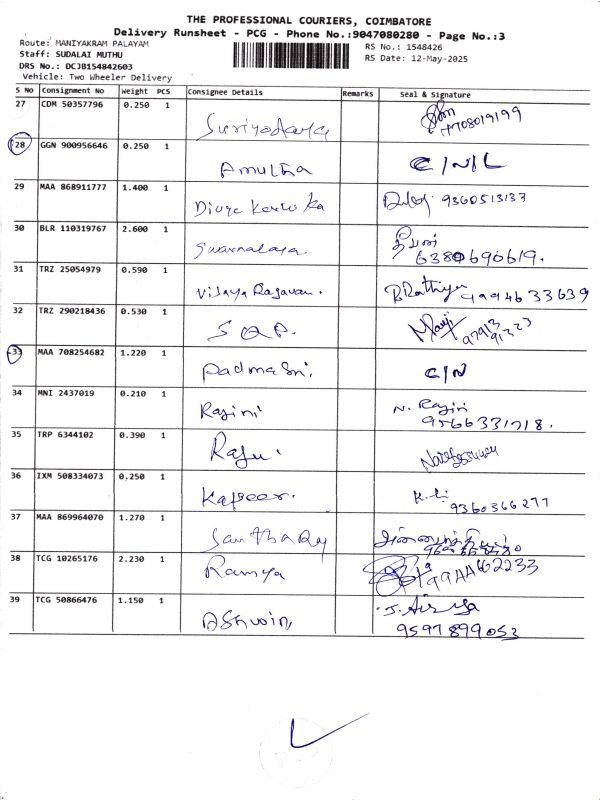 THE PROFESSIONAL COURIERS, COIMBATORE
Delivery Runsheet - PCG - Phone No.:9047080280 - Page No.:3
Route: MANIYAKRAM PALAYAM
Staff: SUDALAI MUTHU
DRS No.: DCJB154842603
Vehicle: Two Wheeler Delivery
RS No.: 1548426
RS Date: 12-May-2025
S No Consignment No Weight PCS Consignee Details Remarks Seal & Signature
27 CDM 50357796 0.250 1
28 GGN 900956646 0.250 1 Amutha C/N/L
29 MAA 868911777 1.400 1 9360513137
30 BLR 110319767 2.600 1 Swarnalaya
31 TRZ 25054979 0.590 1 Vijaya Ragavan. B Rathiya 9994633639
32 TRZ 290218436 0.530 1
33 MAA 708254682 1.220 1 Padmasri. C/N
34 MNI 2437019 0.210 1 Rajini N. Rajini
9566331718.
35 TRP 6344102 0.390 1 Raju.
36 IXM 508334073 0.250 1 Kapeer. 9360366277
37 MAA 869964070 1.270 1
38 TCG 10265176 2.230 1 Ramya
39 TCG 50866476 1.150 1 Ashwin,
9597899052